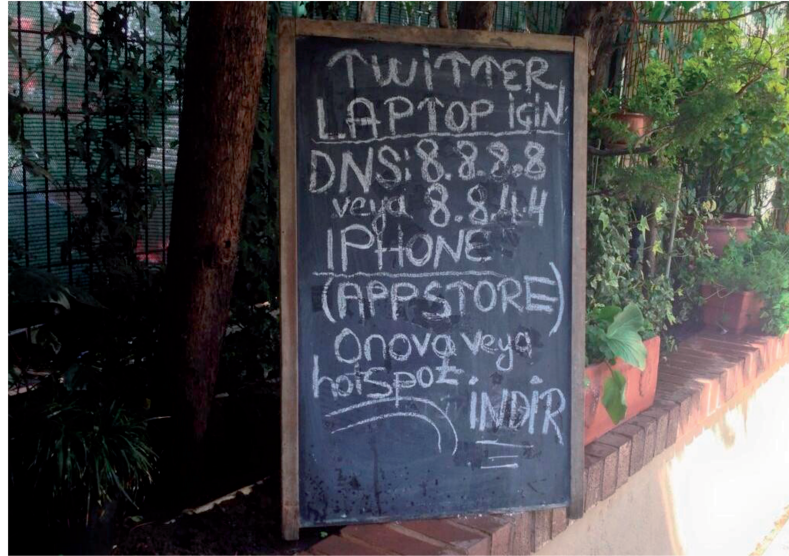 TWİTTER
LAPTOP İÇİN
DNS: 8.8.8.8
veya 8.8.4.4
IPHONE
(APPSTORE)
Onova veya
hotspot.
İNDİR